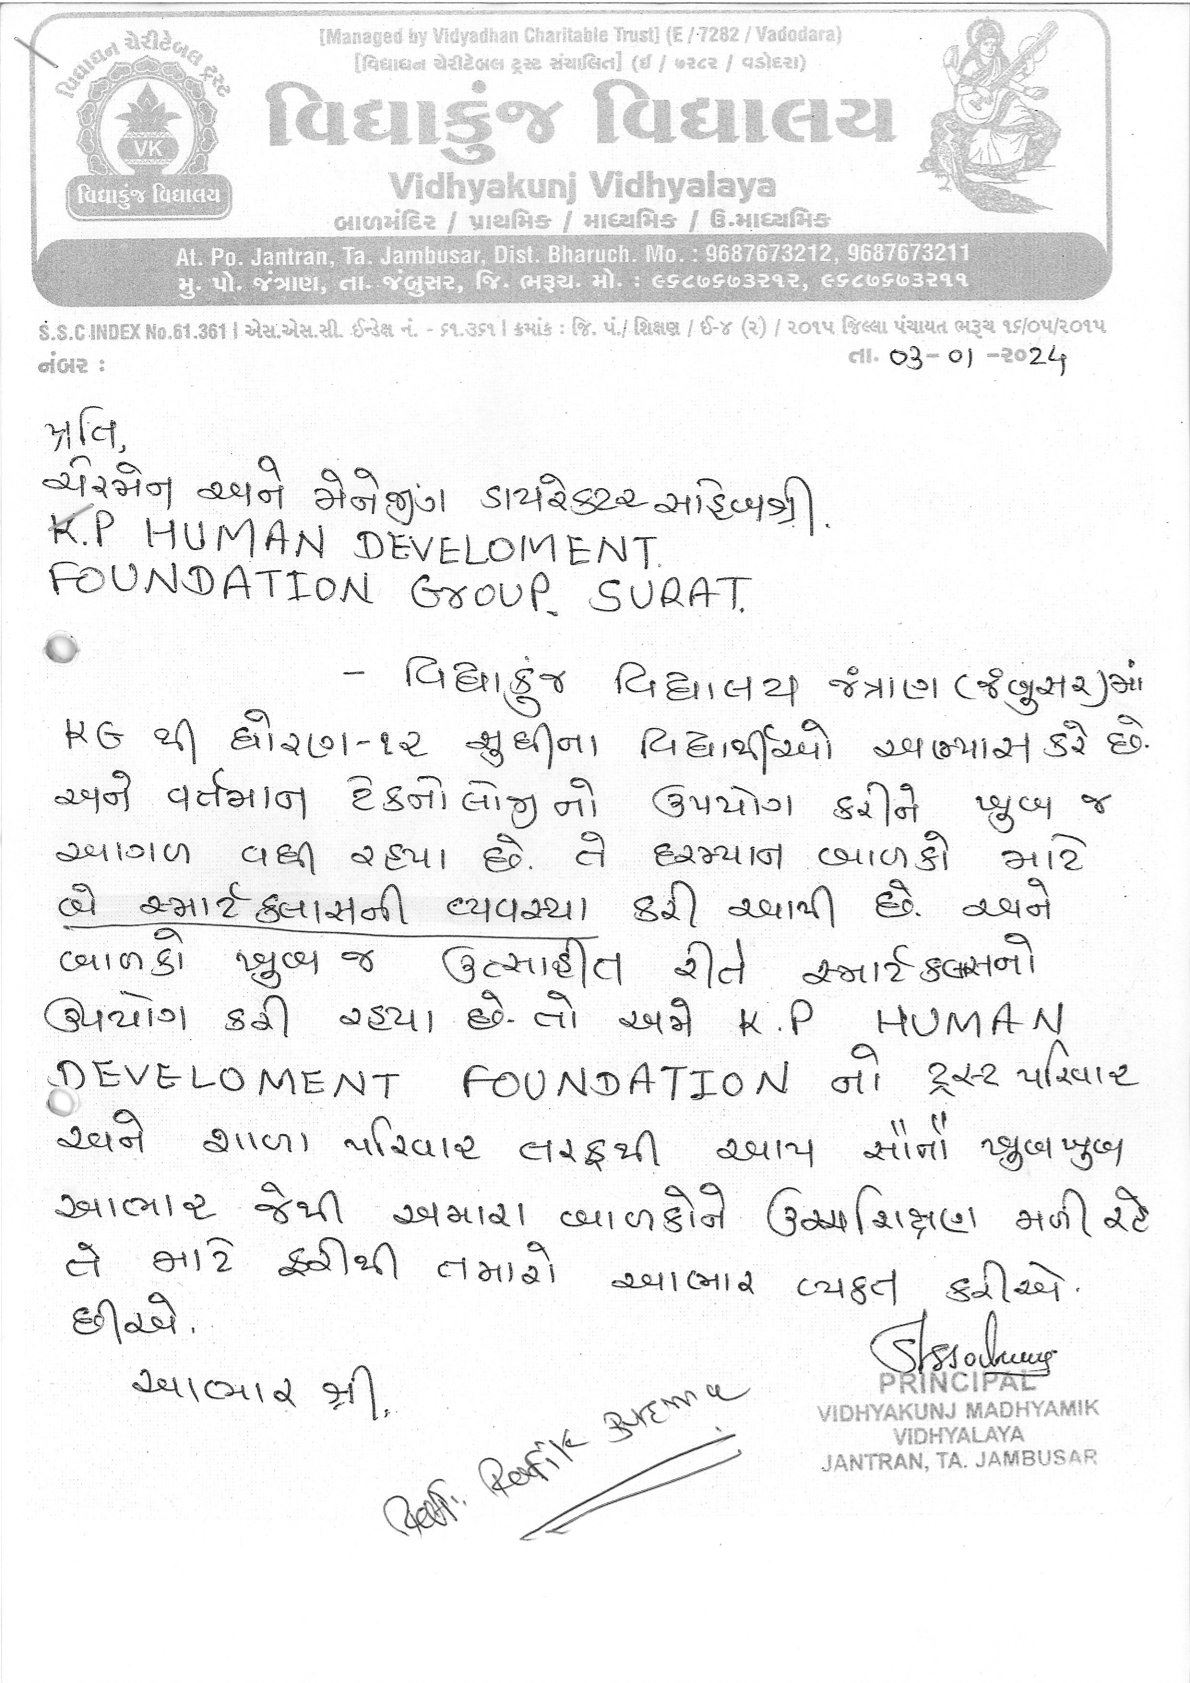 વિદ્યાધન ચેરીટેબલ ટ્રસ્ટ
VK
વિદ્યાકુંજ વિદ્યાલય
[Managed by Vidyadhan Charitable Trust] (E / 7282 / Vadodara)
[વિદ્યાધન ચેરીટેબલ ટ્રસ્ટ સંચાલિત] (ઈ / ૭૨૮૨ / વડોદરા)
વિદ્યાકુંજ વિદ્યાલય
Vidhyakunj Vidhyalaya
બાળમંદિર / પ્રાથમિક / માધ્યમિક / ઉ.માધ્યમિક
At. Po. Jantran, Ta. Jambusar, Dist. Bharuch. Mo. : 9687673212, 9687673211
મુ. પો. જંત્રાણ, તા. જંબુસર, જિ. ભરૂચ. મો. : ૯૬૮૭૬૭૩૨૧૨, ૯૬૮૭૬૭૩૨૧૧
S.S.C INDEX No.61.361 | એસ.એસ.સી. ઈન્ડેક્ષ નં. - ૬૧.૩૬૧ | ક્રમાંક : જિ. પં./ શિક્ષણ / ઈ-૪ (૨) / ૨૦૧૫ જિલ્લા પંચાયત ભરૂચ ૧૬/૦૫/૨૦૧૫
નંબર :
તા. 03-01-૨૦24
પ્રતિ,
ચેરમેન અને મેનેજીંગ ડાયરેક્ટર સાહેબશ્રી.
K.P HUMAN DEVELOMENT.
FOUNDATION GROUP. SURAT.
- વિદ્યાકુંજ વિદ્યાલય જંત્રાણ (જંબુસર)માં
KG થી ધોરણ-૧૨ સુધીના વિદ્યાર્થીઓ અભ્યાસ કરે છે.
અને વર્તમાન ટેકનોલોજીનો ઉપયોગ કરીને ખુબ જ
આગળ વધી રહયા છે. તે દરમ્યાન બાળકો માટે
બે સ્માર્ટ ક્લાસની વ્યવસ્થા કરી આપી છે. અને
બાળકો ખુબ જ ઉત્સાહીત રીતે સ્માર્ટ ક્લાસનો
ઉપયોગ કરી રહયા છે. તો અમે K.P HUMAN
DEVELOMENT FOUNDATION નો ટ્રસ્ટ પરિવાર
અને શાળા પરિવાર તરફથી આપ સૌનો ખુબખુબ
આભાર જેથી અમારા બાળકોને ઉચ્ચશિક્ષણ મળી રહે
તે માટે ફરીથી તમારો આભાર વ્યક્ત કરીએ.
છીએ.
આભાર શ્રી.
PRINCIPAL
VIDHYAKUNJ MADHYAMIK
VIDHYALAYA
JANTRAN, TA. JAMBUSAR